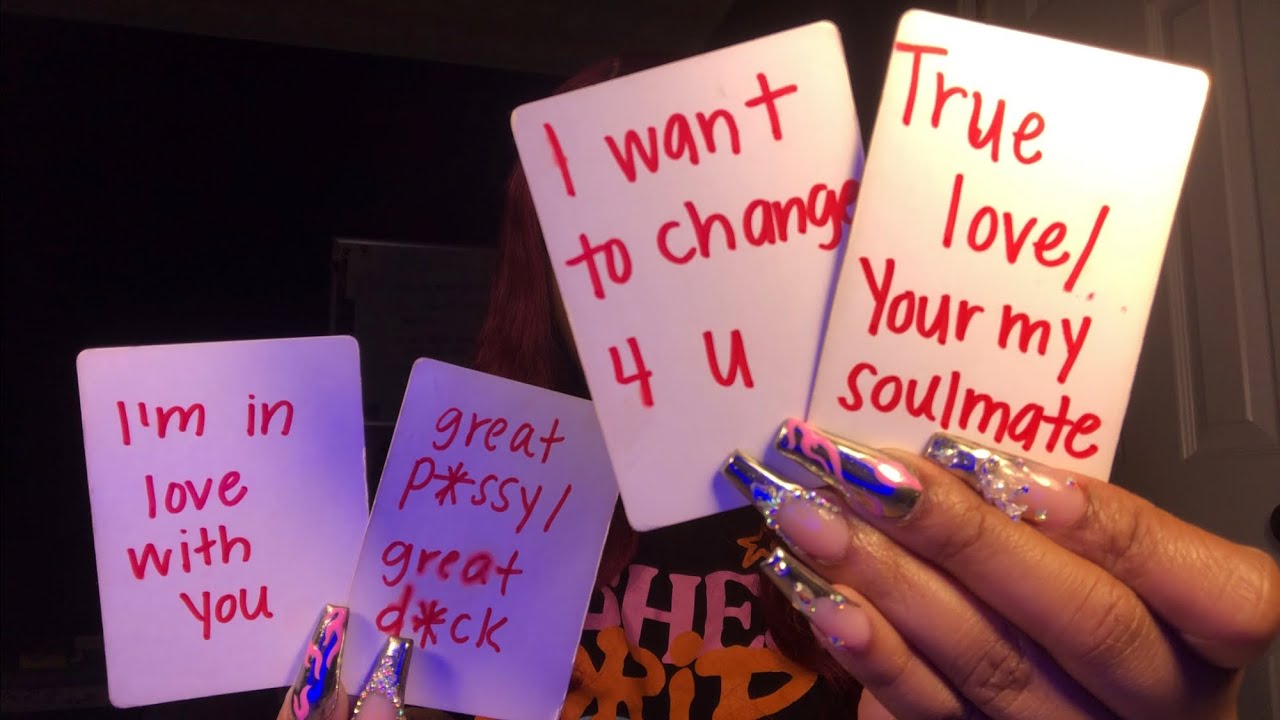 I'm in
love
with
you
great
p*ssy/
great
d*ck
I want
to change
4 U
True
love/
Your my
soulmate